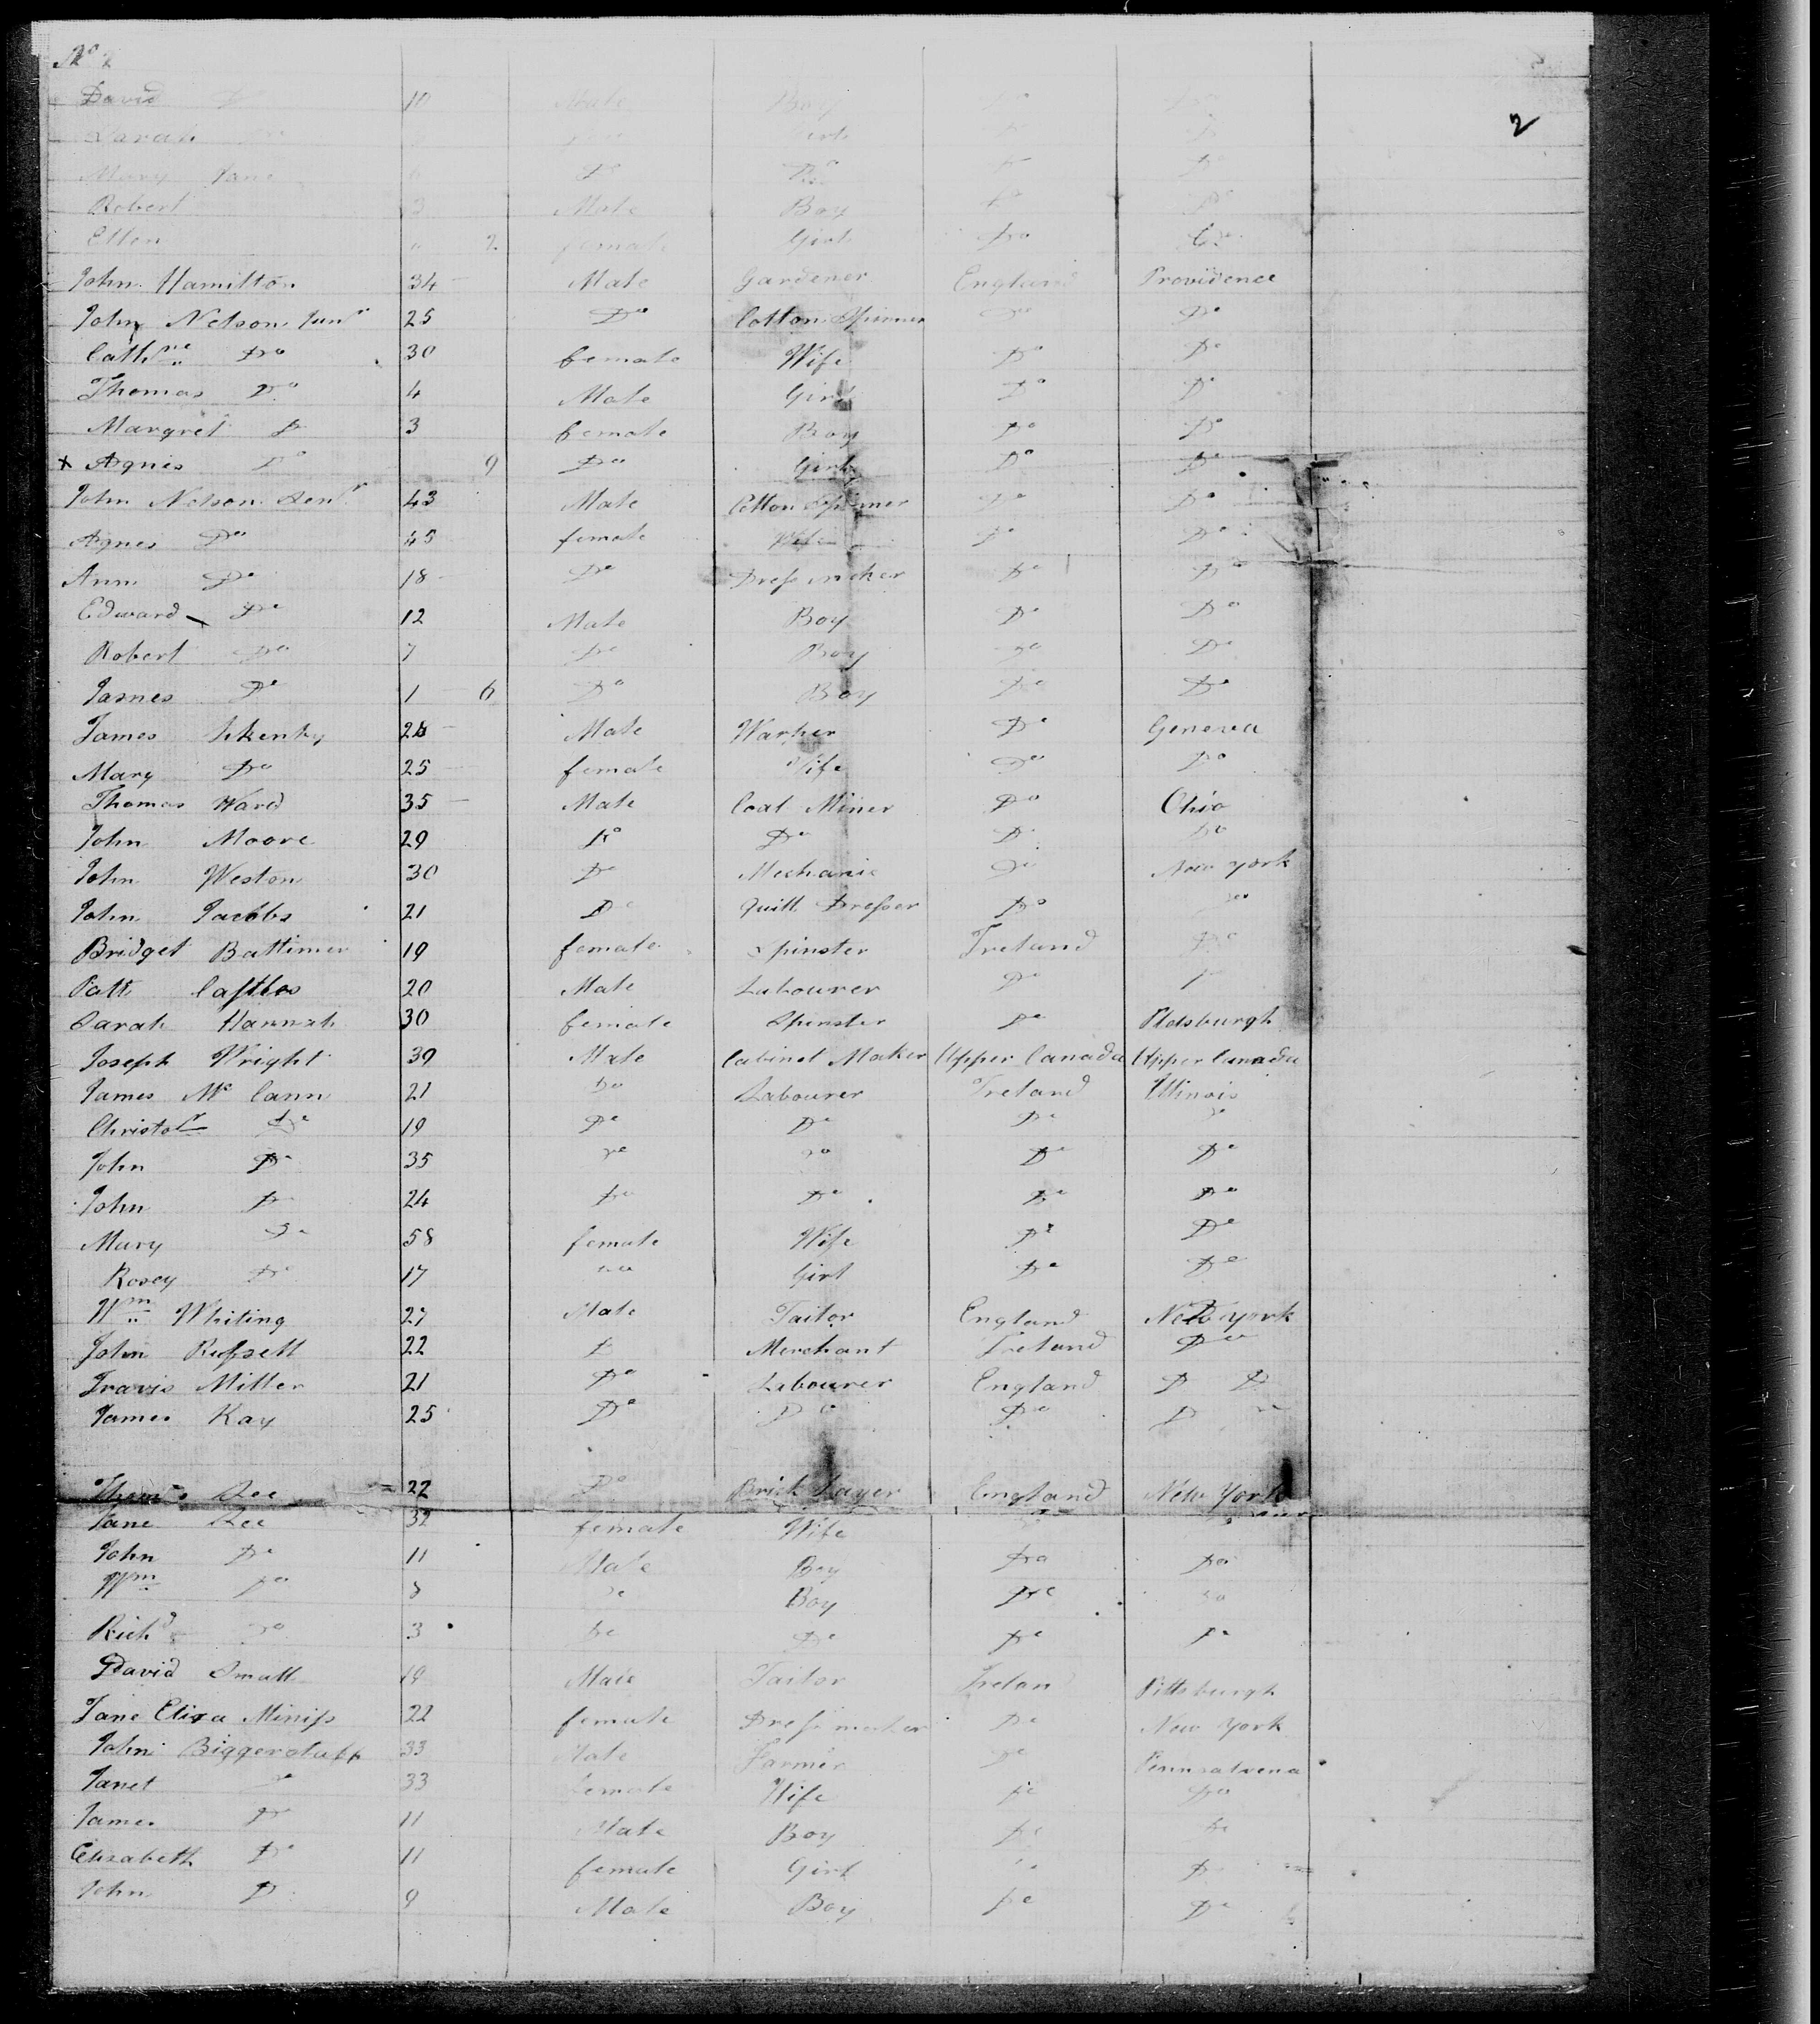 No 2
2
David Do 10 Male Boy Do Do
Sarah
Mary Jane Do Do Do Do
Robert 3 Male Boy Do Do
Ellen 2 female Girl Do Do
John Hamilton 34 Male Gardener England Providence
John Nelson Junr 25 Do Cotton Spinner Do Do
Cathne Do 30 female Wife Do Do
Thomas Do 4 Male Girl Do Do
Margret Do 3 female Boy Do Do
x Agnis Do 9 Do Girl Do Do
John Nelson Senr 43 Male Cotton Spinner Do Do
Agnes Do 45 female Wife Do Do
Ann Do 18 Do Dress maker Do Do
Edward Do 12 Male Boy Do Do
Robert Do 7 Do Boy Do Do
James Do 1 6 Do Boy Do Do
James Male Warper Do Geneva
Mary Do 25 female Wife Do Do
Thomas Ward 35 Male Coal Miner Do Ohio
John Moore 29 Do Do Do Do
John Weston 30 Do Mechanic Do New York
John Jacobs 21 Do Quill Dresser Do Do
Bridget Battimer 19 female Spinster Ireland Do
Patk 20 Male Labourer Do Do
Sarah Hannah 30 female Spinster Do
Joseph Wright 39 Male Cabinet Maker Upper Canada Upper Canada
James Mc Cann 21 Do Labourer Ireland Illinois
Christor Do 19 Do Do Do Do
John Do 35 Do Do Do Do
John Do 24 Do Do Do Do
Mary Do 58 female Wife Do Do
Rosey Do 17 Do Girl Do Do
Wm Whiting 27 Male Tailor England New York
John Russell 22 Do Merchant Ireland Do
Travis Miller 21 Do Labourer England D D
James Kay 25 Do Do Do Do
Thoms Lee 22 Do Brick Layer England New York
Jane Lee 32 female Wife
John Do 11 Male Boy Do Do
Wm Do 8 Do Boy Do Do
Richd Do 3 Do Do Do Do
David Small 19 Male Tailor Irelan Pittsburgh
Jane Eliza Miniss 22 female Dress maker Do New York
John Biggerstaff 33 Male Farmer Do Pennsalvena
Janet Do 33 female Wife Do Do
James Do 11 Male Boy Do Do
Elisabeth Do 11 female Girl Do Do
John Do 9 Male Boy Do Do